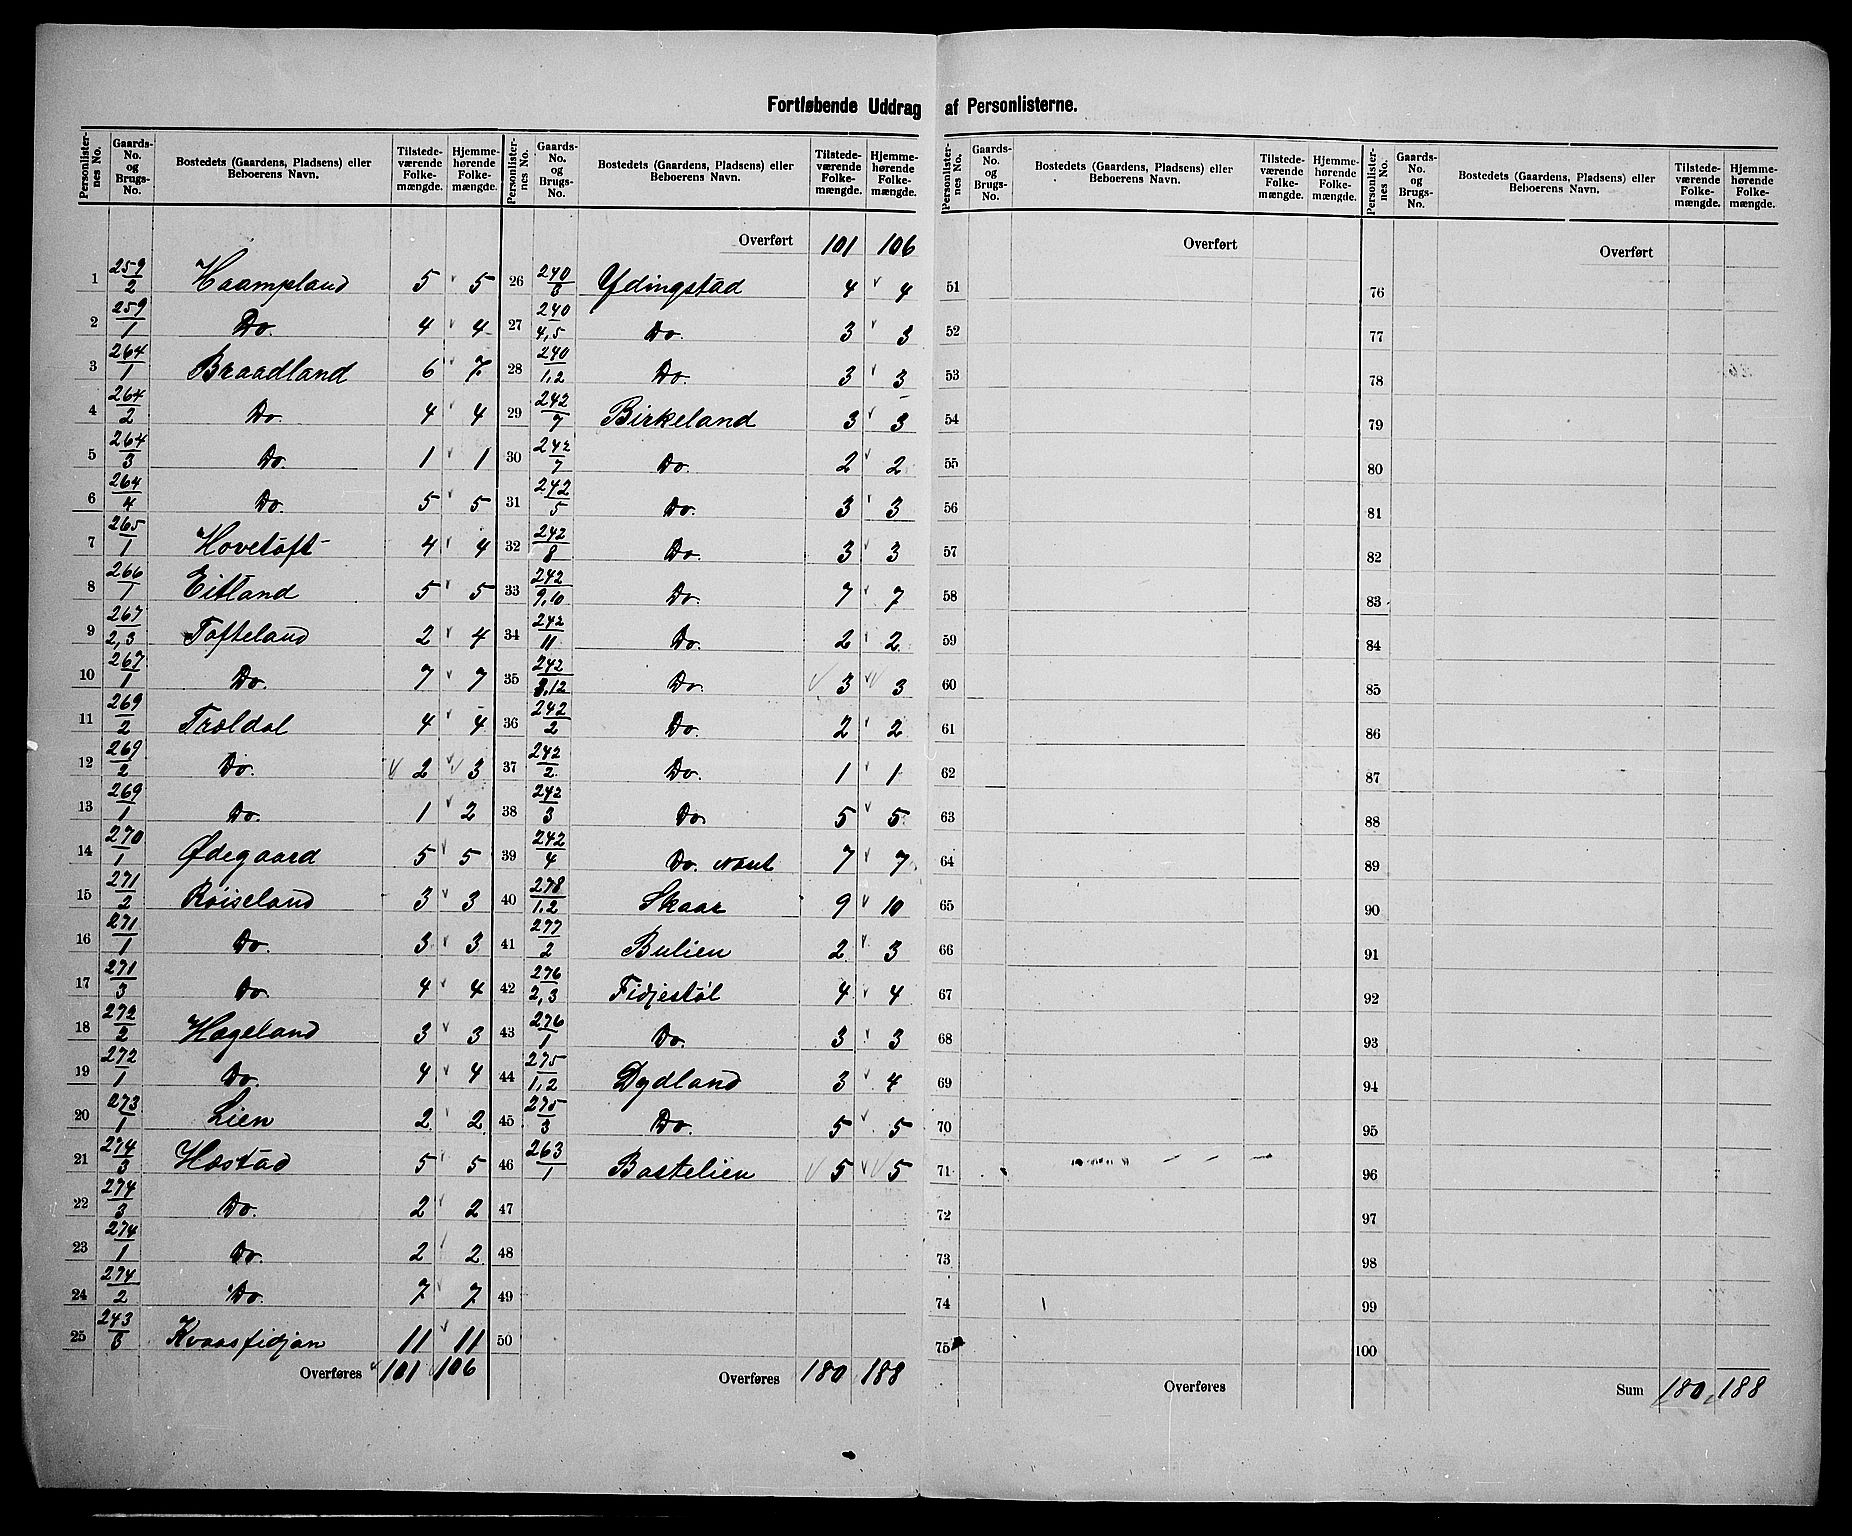 Fortløbende Uddrag af Personlisterne.
Personlisternes No. | Gaards-No. og Brugs-No. | Bostedets (Gaardens, Pladsens) eller Beboerens Navn. | Tilstedeværende Folkemængde. | Hjemmehørende Folkemængde.
1 259/2 Haampland 5 5
2 259/1 Do. 4 4
3 264/1 Braadland 6 7
4 264/2 Do. 4 4
5 264/3 Do. 1 1
6 264/4 Do. 5 5
7 265/1 Hovetoft 4 4
8 266/1 Eitland 5 5
9 267/2,3 Tofteland 2 4
10 267/1 Do. 7 7
11 269/2 Trældal 4 4
12 269/2 Do. 2 3
13 269/1 Do. 1 2
14 270/1 Ødegaard 5 5
15 271/2 Røiseland 3 3
16 271/1 Do. 3 3
17 271/3 Do. 4 4
18 272/2 Hægeland 3 3
19 272/1 Do. 4 4
20 273/1 Lien 2 2
21 274/3 Hæstad 5 5
22 274/3 Do. 2 2
23 274/1 Do. 2 2
24 274/2 Do. 7 7
25 243/6 Kvaasfidjan 11 11
Overføres 101 106
Personlisternes No. | Gaards-No. og Brugs-No. | Bostedets (Gaardens, Pladsens) eller Beboerens Navn. | Tilstedeværende Folkemængde. | Hjemmehørende Folkemængde.
Overført 101 106
26 240/6 Ydingstad 4 4
27 240/4,5 Do. 3 3
28 240/1,2 Do. 3 3
29 242/7 Birkeland 3 3
30 242/7 Do. 2 2
31 242/5 Do. 3 3
32 242/8 Do. 3 3
33 242/9,10 Do. 7 7
34 242/11 Do. 2 2
35 242/ Do. 3 3
36 242/2 Do. 2 2
37 242/2 Do. 1 1
38 242/3 Do. 5 5
39 242/4 Do. 7 7
40 278/1,2 Skaar 9 10
41 277/2 Bulien 2 3
42 276/2,3 Fidjestøl 4 4
43 276/1 Do. 3 3
44 275/1,2 Dydland 3 4
45 275/3 Do. 5 5
46 263/1 Bastelien 5 5
47
48
49
50
Overføres 180 188
Personlisternes No. | Gaards-No. og Brugs-No. | Bostedets (Gaardens, Pladsens) eller Beboerens Navn. | Tilstedeværende Folkemængde. | Hjemmehørende Folkemængde.
Overført
51
52
53
54
55
56
57
58
59
60
61
62
63
64
65
66
67
68
69
70
71
72
73
74
75
Overføres
Personlisternes No. | Gaards-No. og Brugs-No. | Bostedets (Gaardens, Pladsens) eller Beboerens Navn. | Tilstedeværende Folkemængde. | Hjemmehørende Folkemængde.
Overført
76
77
78
79
80
81
82
83
84
85
86
87
88
89
90
91
92
93
94
95
96
97
98
99
100
Sum 180 188